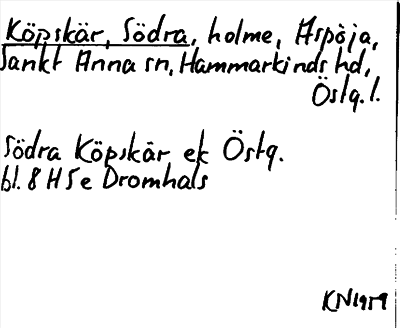 Köpskär, Södra, holme, Aspöja,
Sankt Anna sn, Hammarkinds hd,
Östg.l.
Södra Köpskär ek Östg.
bl. 8 H 5 e Dromhals
KN1959